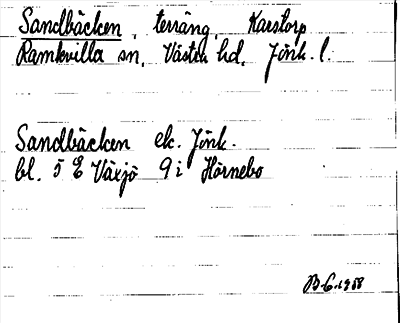 Sandbäcken, terräng, Karstorp
Ramkvilla sn, Västra hd, Jönk. l.
Sandbäcken ek. Jönk.
bl. 5 E Växjö 9 i Hörnebo
B.G. 1968